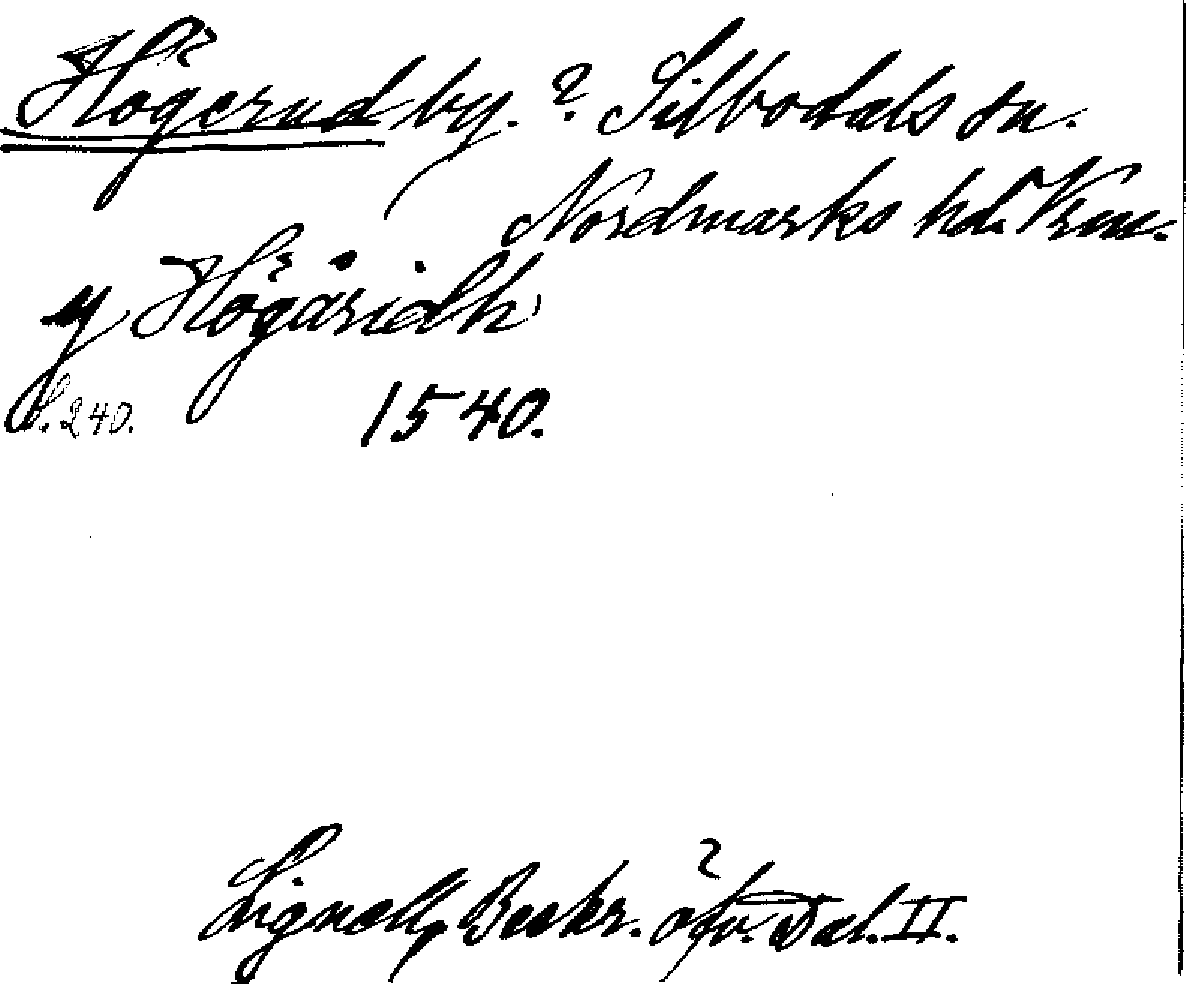 Högerud by. ? Silbodals sn.
Nordmarks hd. Vrml.
y Högåridh
S. 240. 1540.
Lignell, Beskr. öfv. Dal. II.